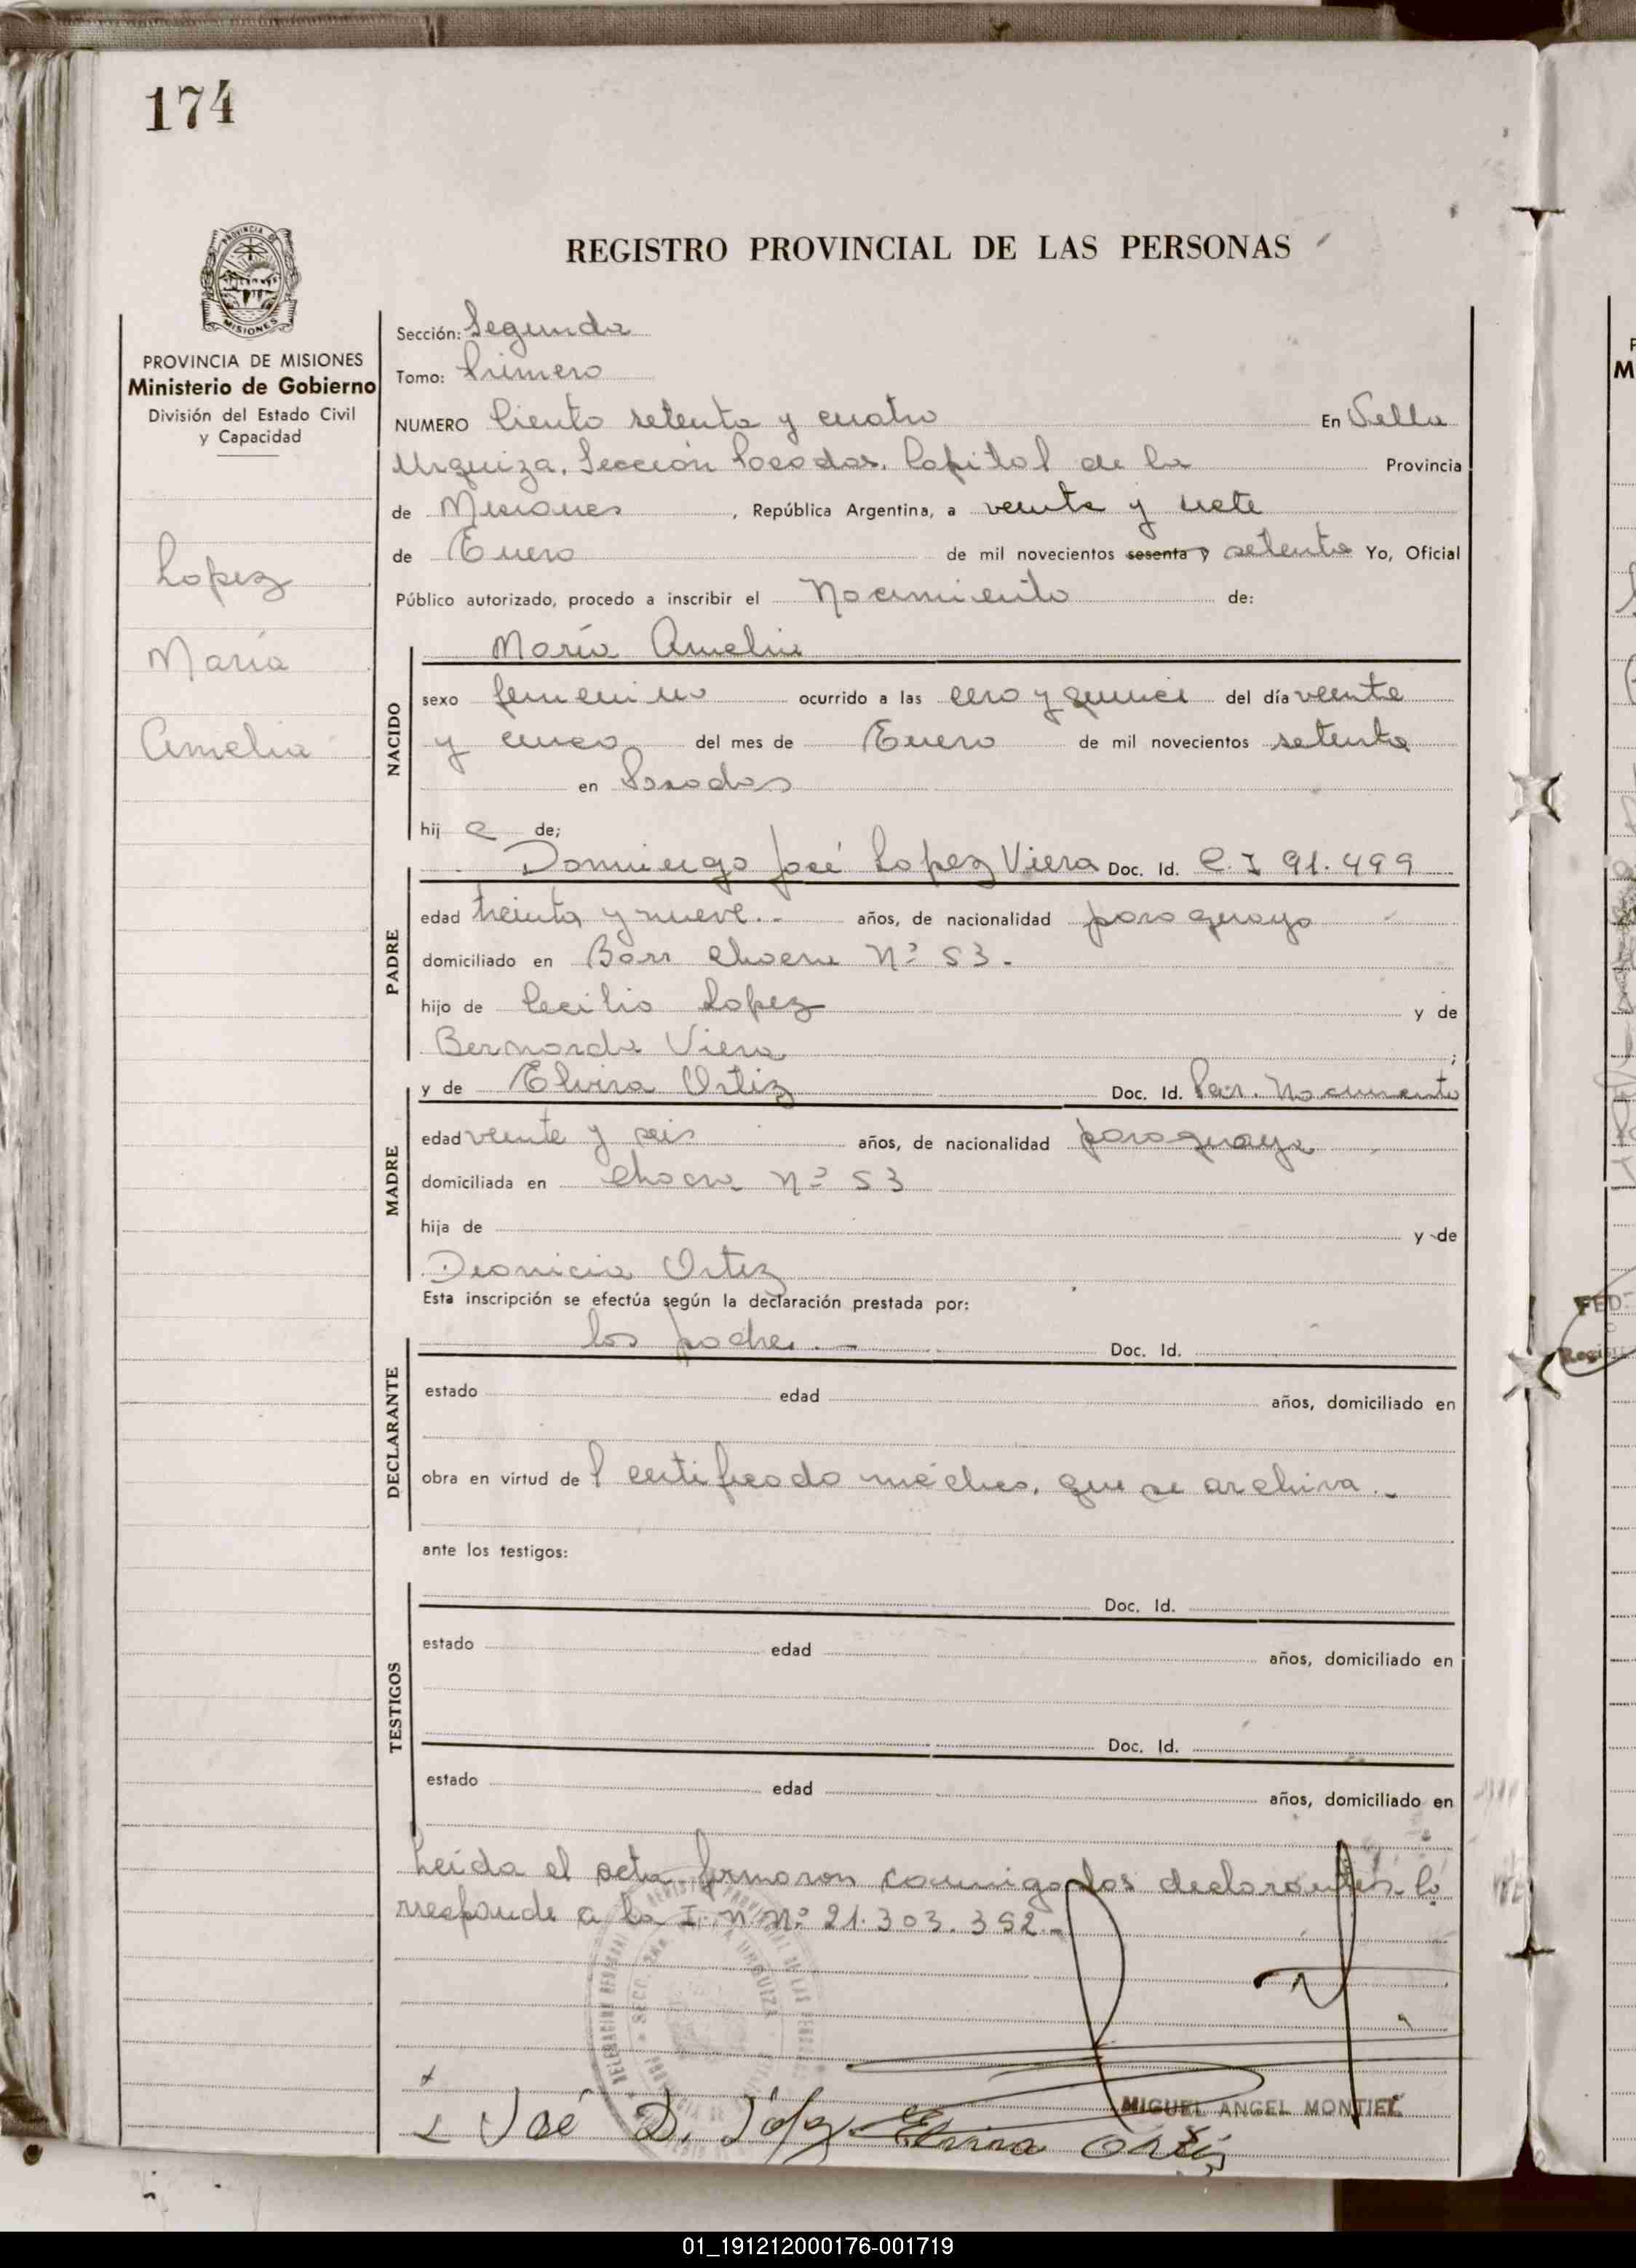 174
PROVINCIA DE
MISIONES
REGISTRO PROVINCIAL DE LAS PERSONAS
PROVINCIA DE MISIONES
Ministerio de Gobierno
División del Estado Civil
y Capacidad
Lopez
María
Amelia
Sección: Segunda
Tomo: Primero
NUMERO Ciento setenta y cuatro En Villa
Urquiza, Sección Posadas, Capital de la Provincia
de Misiones, República Argentina, a veinte y siete
de Enero de mil novecientos sesenta y setenta Yo, Oficial
Público autorizado, procedo a inscribir el Nacimiento de:
María Amelia
NACIDO
sexo femenino ocurrido a las cero y quince del día veinte
y cinco del mes de Enero de mil novecientos setenta
en Posadas
hij a de;
Domingo José Lopez Viera Doc. Id. C. I 91.499
PADRE
edad treinta y nueve.- años, de nacionalidad paraguayo
domiciliado en Barr Chacra Nº 53.
hijo de Cecilio Lopez y de
Bernarda Viera;
y de Elvira Ortiz Doc. Id. Par. Nacimiento
MADRE
edad veinte y seis años, de nacionalidad paraguaya
domiciliada en Chacra Nº 53
hija de y de
Deonicia Ortiz
Esta inscripción se efectúa según la declaración prestada por:
los padres.- Doc. Id.
DECLARANTE
estado edad años, domiciliado en
obra en virtud de l certificado médico, que se archiva.-
ante los testigos:
Doc. Id.
TESTIGOS
estado edad años, domiciliado en
Doc. Id.
estado edad años, domiciliado en
Leída el acta firmaron conmigo los declarantes. Co
rresponde a la I. N. Nº 21.303.352.-
MIGUEL ANGEL MONTIEL
José D. López Elvira Ortiz
01_191212000176-001719